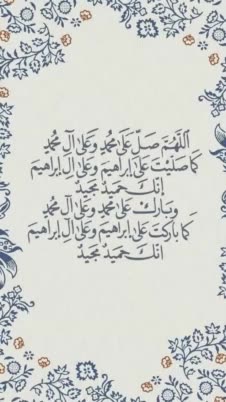 اَللّٰهُمَّ صَلِّ عَلَىٰ مُحَمَّدٍ وَعَلَىٰ آلِ مُحَمَّدٍ
كَمَا صَلَّيْتَ عَلَىٰ إِبْرَاهِيمَ وَعَلَىٰ آلِ إِبْرَاهِيمَ
إِنَّكَ حَمِيدٌ مَجِيدٌ
وَبَارِكْ عَلَىٰ مُحَمَّدٍ وَعَلَىٰ آلِ مُحَمَّدٍ
كَمَا بَارَكْتَ عَلَىٰ إِبْرَاهِيمَ وَعَلَىٰ آلِ إِبْرَاهِيمَ
إِنَّكَ حَمِيدٌ مَجِيدٌ